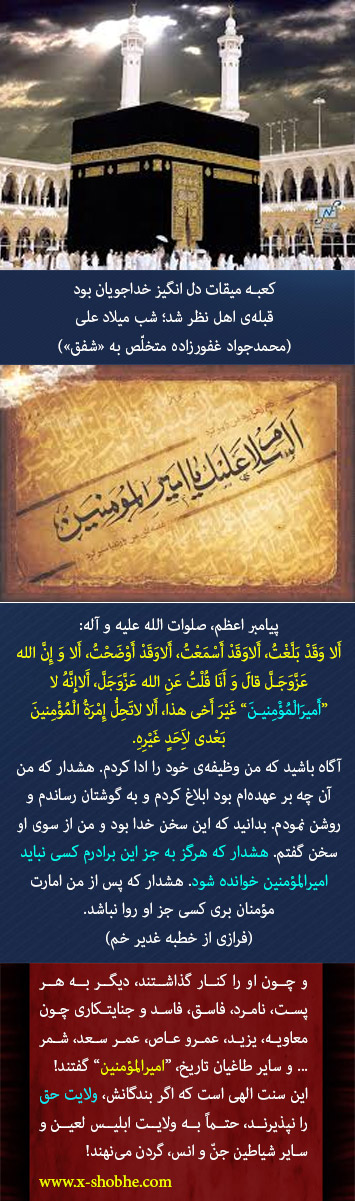 کعبـه میقات دل انگیز خداجویان بود
قبله‌ی اهل نظر شد؛ شب میلاد علی
(محمدجواد غفورزاده متخلّص به «شفق»)
السلام علیك یا امیر المؤمنین
پیامبر اعظم، صلوات الله علیه و آله:
أَلا وَقَدْ بَلَّغْتُ، أَلاوَقَدْ أَسْمَعْتُ، أَلاوَقَدْ أَوْضَحْتُ، أَلا وَ إِنَّ الله
عَزَّوَجَـلَّ قالَ وَ أَنَا قُلْتُ عَنِ الله عَزَّوَجَلَّ، أَلاإِنَّهُ لا
”أَمیرَالْمُؤْمِنیـنَ“ غَیْرَ أَخی هذا، أَلا لاتَحِلُّ إِمْرَةُ الْمُؤْمِنینَ
بَعْدی لاَِحَدٍ غَیْرِهِ.
آگاه باشید که من وظیفه‌ی خود را ادا کردم. هشدار که من
آن چه بر عهده‌ام بود ابلاغ کردم و به گوشتان رساندم و
روشن نمودم. بدانید که این سخن خدا بود و من از سوی او
سخن گفتم. هشدار که هرگز به جز این برادرم کسی نباید
امیرالمؤمنین خوانده شود. هشدار که پس از من امارت
مؤمنان بری کسی جز او روا نباشد.
(فرازی از خطبه غدیر خم)
و چـون او را کنـار گذاشـتند، دیگـر بـه هـر
پست، نامـرد، فاسـق، فاسد و جنایتـکاری چـون
معاویـه، یزیـد، عمـرو عـاص، عمـر سـعد، شـمر
... و سایر طاغیان تاریخ، ”امیرالمؤمنین“ گفتند!
این سنت الهی است که اگر بندگانش، ولایت حق
را نپذیرنـد، حتمـاً بـه ولایـت ابلیـس لعیـن و
سـایر شیاطین جنّ و انس، گردن می‌نهند!
www.x-shobhe.com